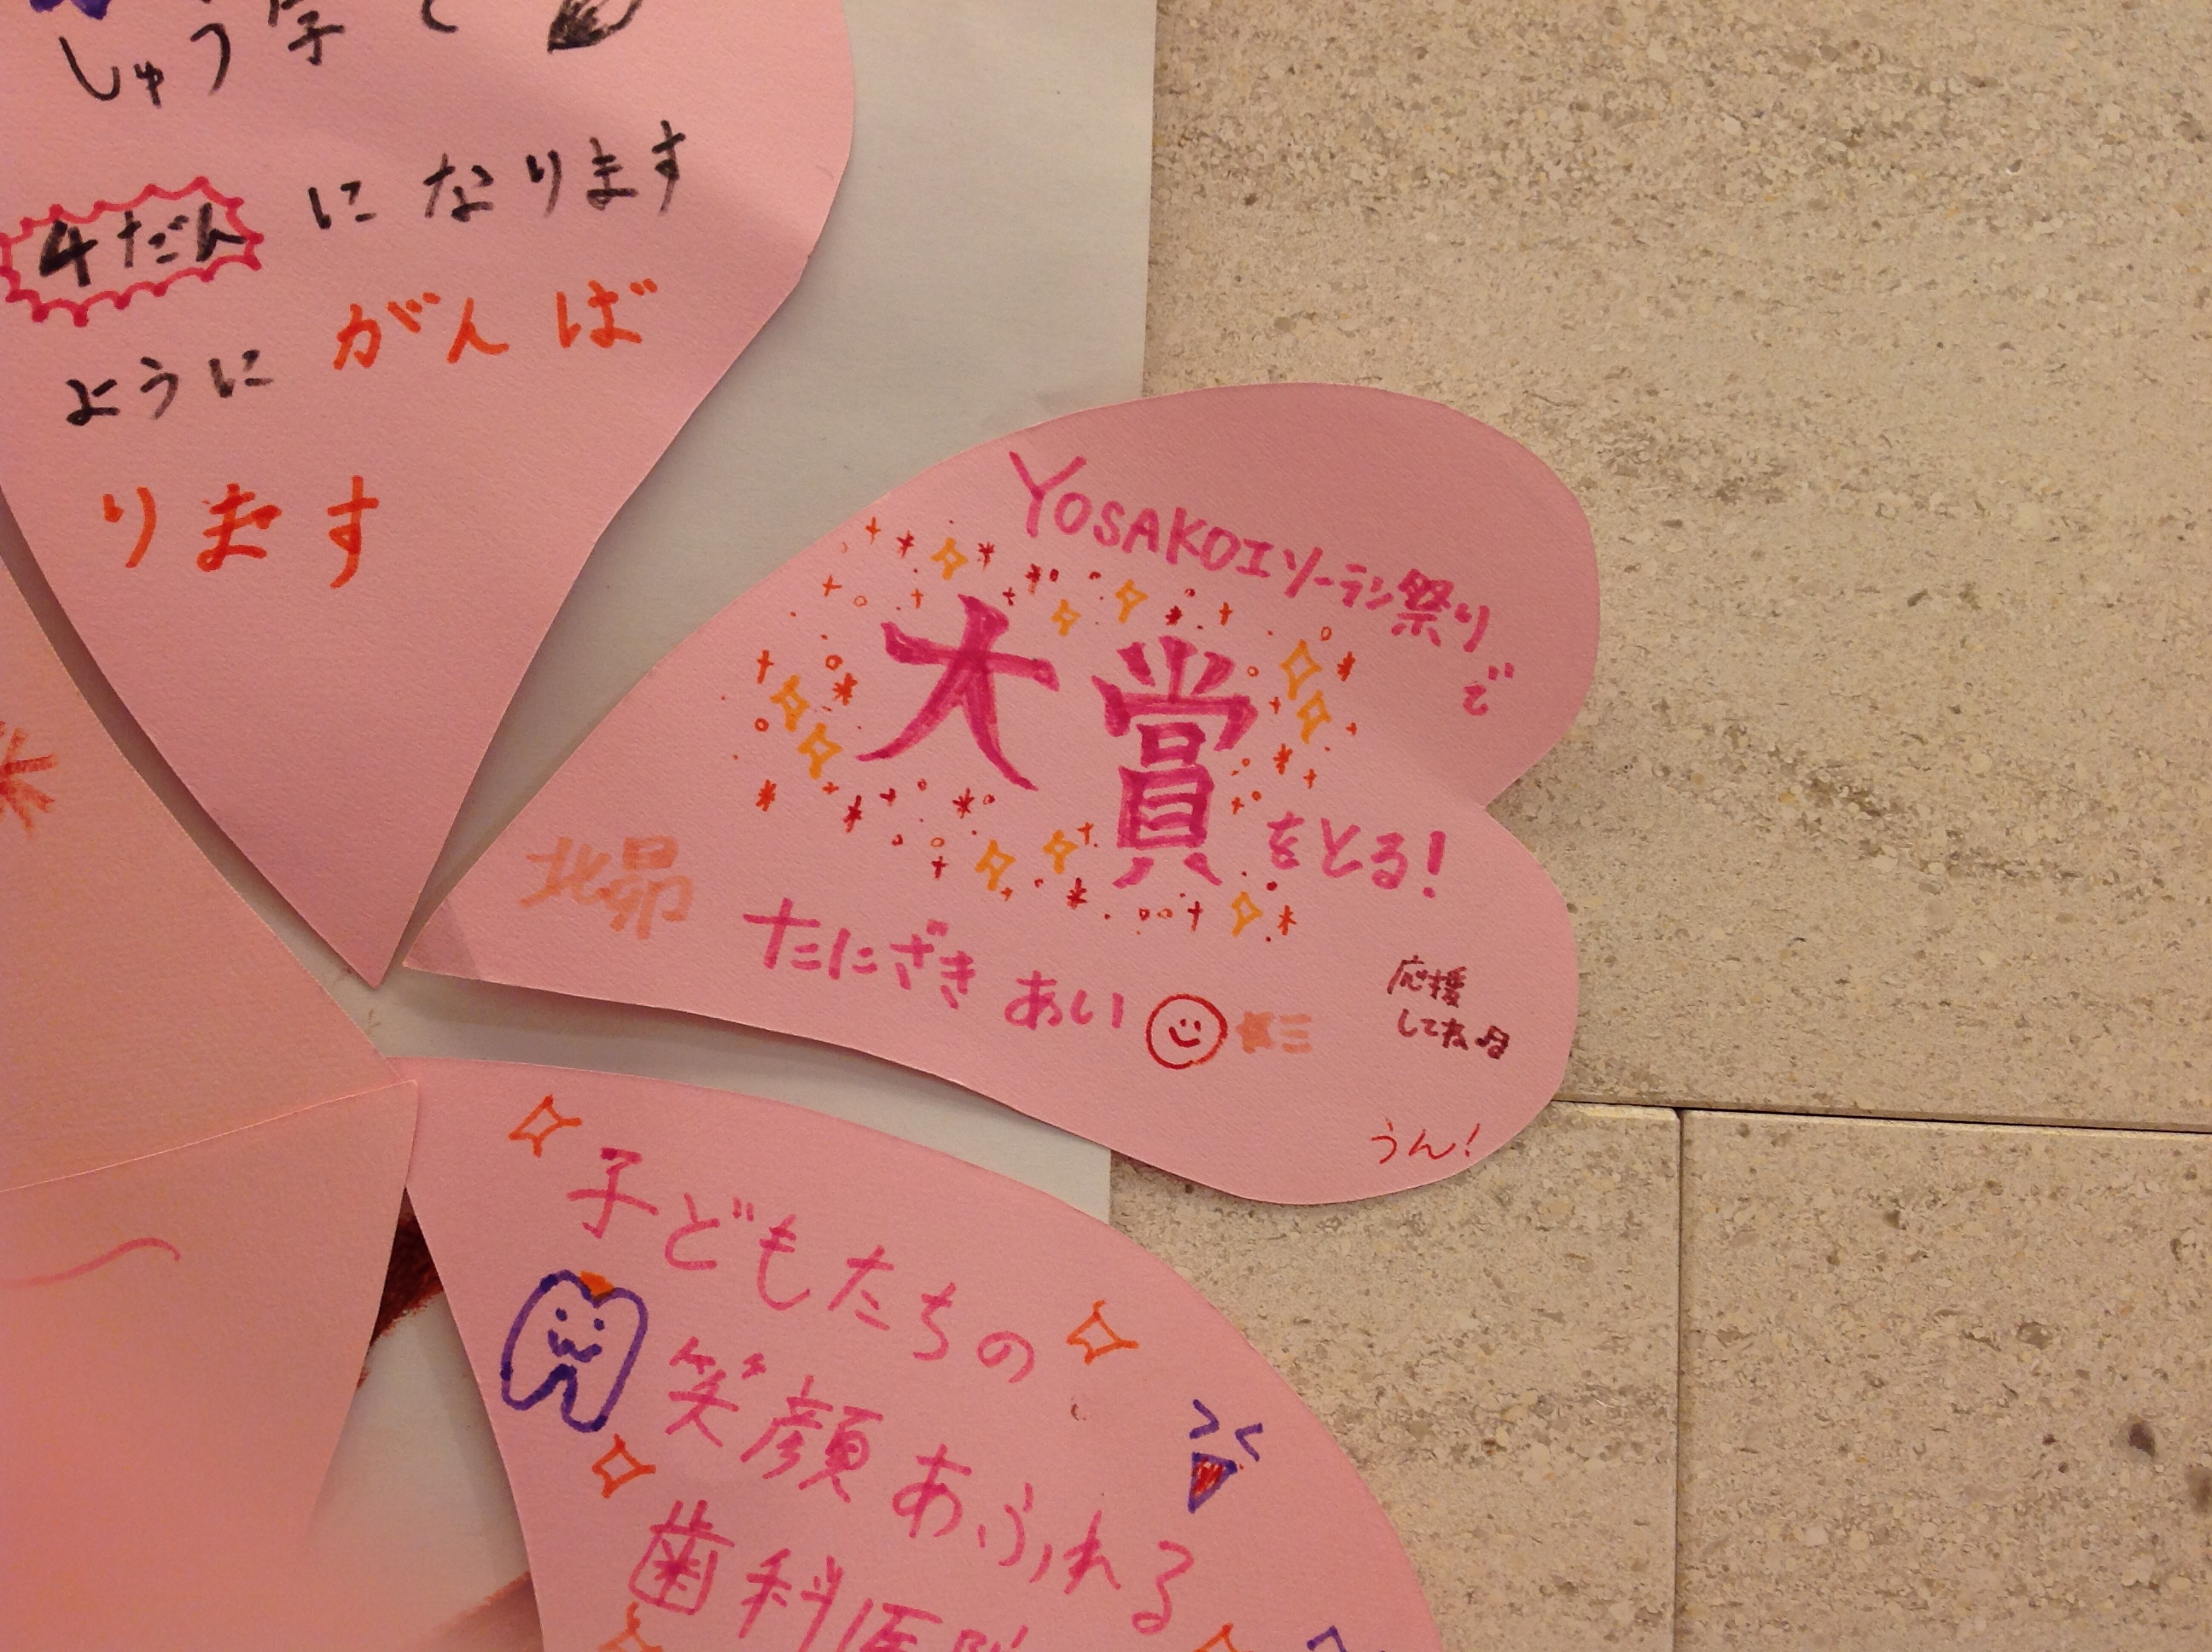 しゅう字で
4だん になります
ように がんば
ります
YOSAKOIソーラン祭り
で
大賞
をとる!
北昴
たにざき あい
応援
してね♪
うん!
子どもたちの
笑顔あふれる
歯科医院